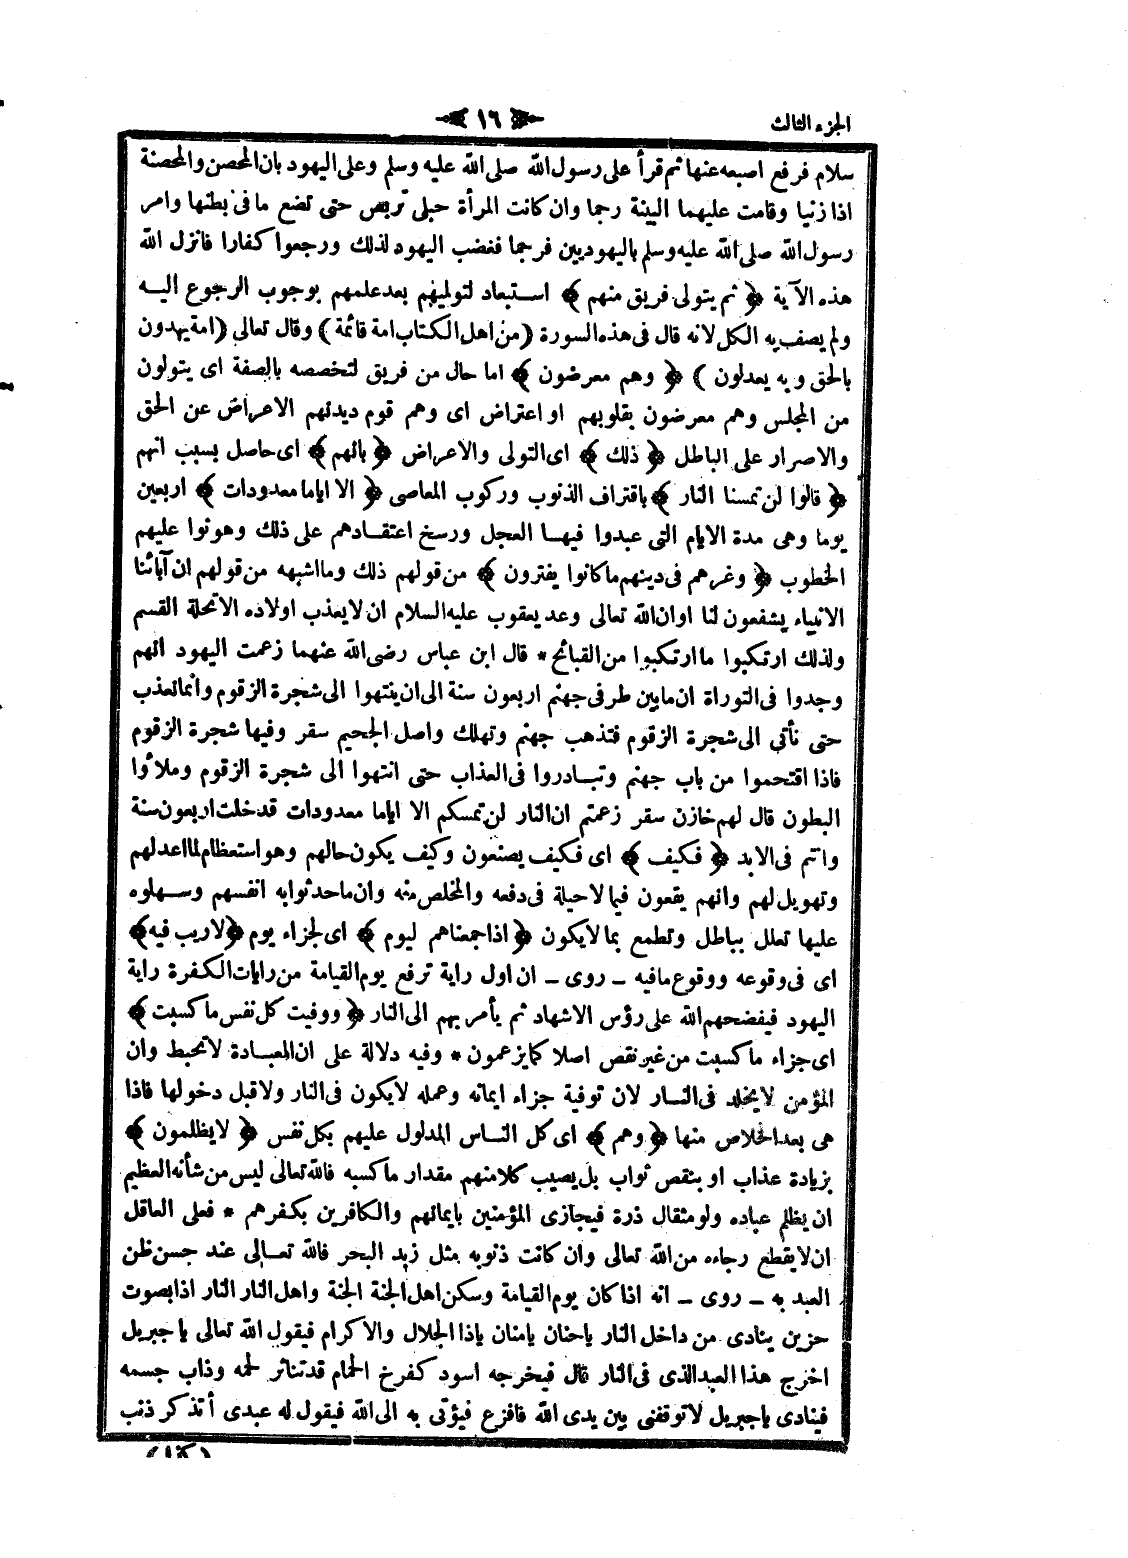 الجزء الثالث
﴿ ١٦ ﴾
سلام فرفع اصبعه عنها ثم قرأ على رسول الله صلى الله عليه وسلم وعلى اليهود بان المحصن والمحصنة
اذا زنيا وقامت عليهما البينة رجما وان كانت المرأة حبلى تربص حتى تضع ما فى بطنها وامر
رسول الله صلى الله عليه وسلم باليهوديين فرجما فغضب اليهود لذلك ورجعوا كفارا فانزل الله
هذه الآية ﴿ ثم يتولى فريق منهم ﴾ استبعاد لتوليهم بعد علمهم بوجوب الرجوع اليه
ولم يصف به الكل لانه قال فى هذه السورة (من اهل الكتاب امة قائمة) وقال تعالى (امة يهدون
بالحق وبه يعدلون ) ﴿ وهم معرضون ﴾ اما حال من فريق لتخصصه بالصفة اى يتولون
من المجلس وهم معرضون بقلوبهم او اعتراض اى وهم قوم ديدنهم الاعراض عن الحق
والاصرار على الباطل ﴿ ذلك ﴾ اى التولى والاعراض ﴿ بانهم ﴾ اى حاصل بسبب انهم
﴿ قالوا لن تمسنا النار ﴾ باقتراف الذنوب وركوب المعاصى ﴿ الا اياما معدودات ﴾ اربعين
يوما وهى مدة الايام التى عبدوا فيها العجل ورسخ اعتقادهم على ذلك وهونوا عليهم
الخطوب ﴿ وغرهم فى دينهم ما كانوا يفترون ﴾ من قولهم ذلك وما اشبهه من قولهم ان آبائنا
الانبياء يشفعون لنا او ان الله تعالى وعد يعقوب عليه السلام ان لا يعذب اولاده الا تحلة القسم
ولذلك ارتكبوا ما ارتكبوا من القبائح * قال ابن عباس رضى الله عنهما زعمت اليهود انهم
وجدوا فى التوراة ان ما بين طرفى جهنم اربعون سنة الى ان ينتهوا الى شجرة الزقوم وانما نعذب
حتى نأتى الى شجرة الزقوم فتذهب جهنم وتهلك واصل الجحيم سقر وفيها شجرة الزقوم
فاذا اقتحموا من باب جهنم وتبادروا فى العذاب حتى انتهوا الى شجرة الزقوم وملأوا
البطون قال لهم خازن سقر زعمتم ان النار لن تمسكم الا اياما معدودات قد خلت اربعون سنة
وانتم فى الابد ﴿ فكيف ﴾ اى فكيف يصنعون وكيف يكون حالهم وهو استعظام لما اعد لهم
وتهويل لهم وانهم يقعون فيما لا حيلة فى دفعه والمخلص منه وان ما حدثوا به انفسهم وسهلوه
عليها تعلل بباطل وتطمع بما لا يكون ﴿ اذا جمعناهم ليوم ﴾ اى لجزاء يوم ﴿ لا ريب فيه ﴾
اى فى وقوعه ووقوع ما فيه ـ روى ـ ان اول راية ترفع يوم القيامة من رايات الكفرة راية
اليهود فيفضحهم الله على رؤس الاشهاد ثم يأمر بهم الى النار ﴿ ووفيت كل نفس ما كسبت ﴾
اى جزاء ما كسبت من غير نقص اصلا كما يزعمون * وفيه دلالة على ان العبادة لا تحبط وان
المؤمن لا يخلد فى النار لان توفية جزاء ايمانه وعمله لا يكون فى النار ولا قبل دخولها فاذا
هى بعد الخلاص منها ﴿ وهم ﴾ اى كل الناس المدلول عليهم بكل نفس ﴿ لا يظلمون ﴾
بزيادة عذاب او بنقص ثواب بل يصيب كلا منهم مقدار ما كسبه فالله تعالى ليس من شأنه العظيم
ان يظلم عباده ولو مثقال ذرة فيجازى المؤمنين بايمانهم والكافرين بكفرهم * فعلى العاقل
ان لا يقطع رجاءه من الله تعالى وان كانت ذنوبه مثل زبد البحر فالله تعالى عند حسن ظن
العبد به ـ روى ـ انه اذا كان يوم القيامة وسكن اهل الجنة الجنة واهل النار النار اذا بصوت
حزين ينادى من داخل النار يا حنان يا منان يا ذا الجلال والاكرام فيقول الله تعالى يا جبريل
اخرج هذا العبد الذى فى النار قال فيخرجه اسود كفرخ الحمام قد تناثر لحمه وذاب جسمه
فينادى يا جبريل لا توقفنى بين يدى الله فافزع فيؤتى به الى الله فيقول له عبدى أتذكر ذنب